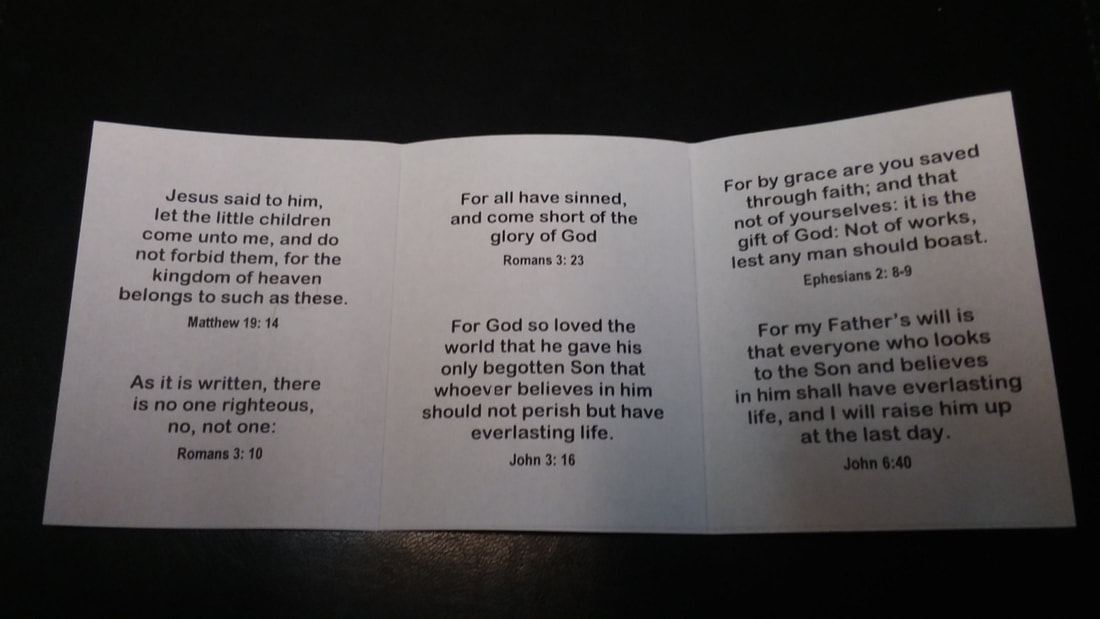 Jesus said to him,
let the little children
come unto me, and do
not forbid them, for the
kingdom of heaven
belongs to such as these.
Matthew 19: 14
As it is written, there
is no one righteous,
no, not one:
Romans 3: 10
For all have sinned,
and come short of the
glory of God
Romans 3: 23
For God so loved the
world that he gave his
only begotten Son that
whoever believes in him
should not perish but have
everlasting life.
John 3: 16
For by grace are you saved
through faith; and that
not of yourselves: it is the
gift of God: Not of works,
lest any man should boast.
Ephesians 2: 8-9
For my Father's will is
that everyone who looks
to the Son and believes
in him shall have everlasting
life, and I will raise him up
at the last day.
John 6:40